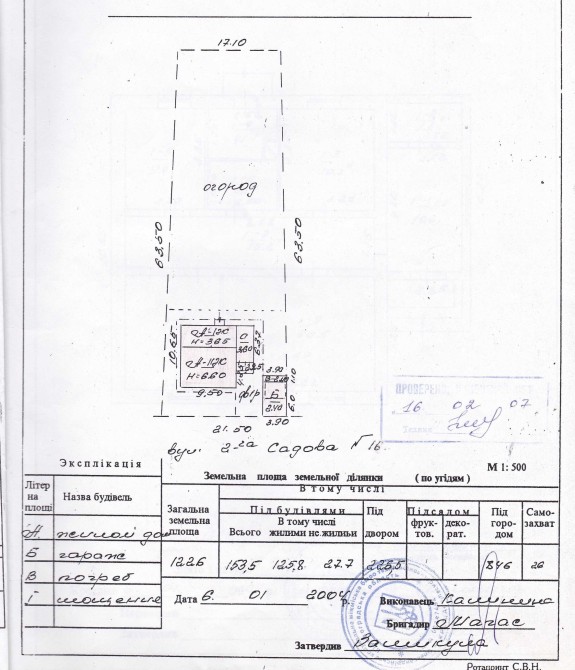 17.10
огород
63,50
63,50
А-1ж
н=3.65
10,65
А-1ж
н=6.60
9,50
двір
3.90
1.0
6.0
Б
2.40
3.90
21.50
вул. 2-га Садова № 16
ПРОВЕРЕНО
16 02 07
М 1: 500
Експлікація
Земельна площа земельної ділянки ( по угідям )
Літер на площі
Назва будівель
Загальна земельна площа
В тому числі
Під будівлями
Всього
В тому числі
жилими
не жилыи
Під двором
Під садом
фрук- тов.
деко- рат.
Під горо- дом
Само- захват
А. жилой дом
Б гараж
В погреб
Г мощение
1226 153,5 125.8 27.7 226.5 846 26
Дата 6. 01 2004р.
Виконавець Калинина
Бригадир
Затвердив
Ротапринт С.В.Н.